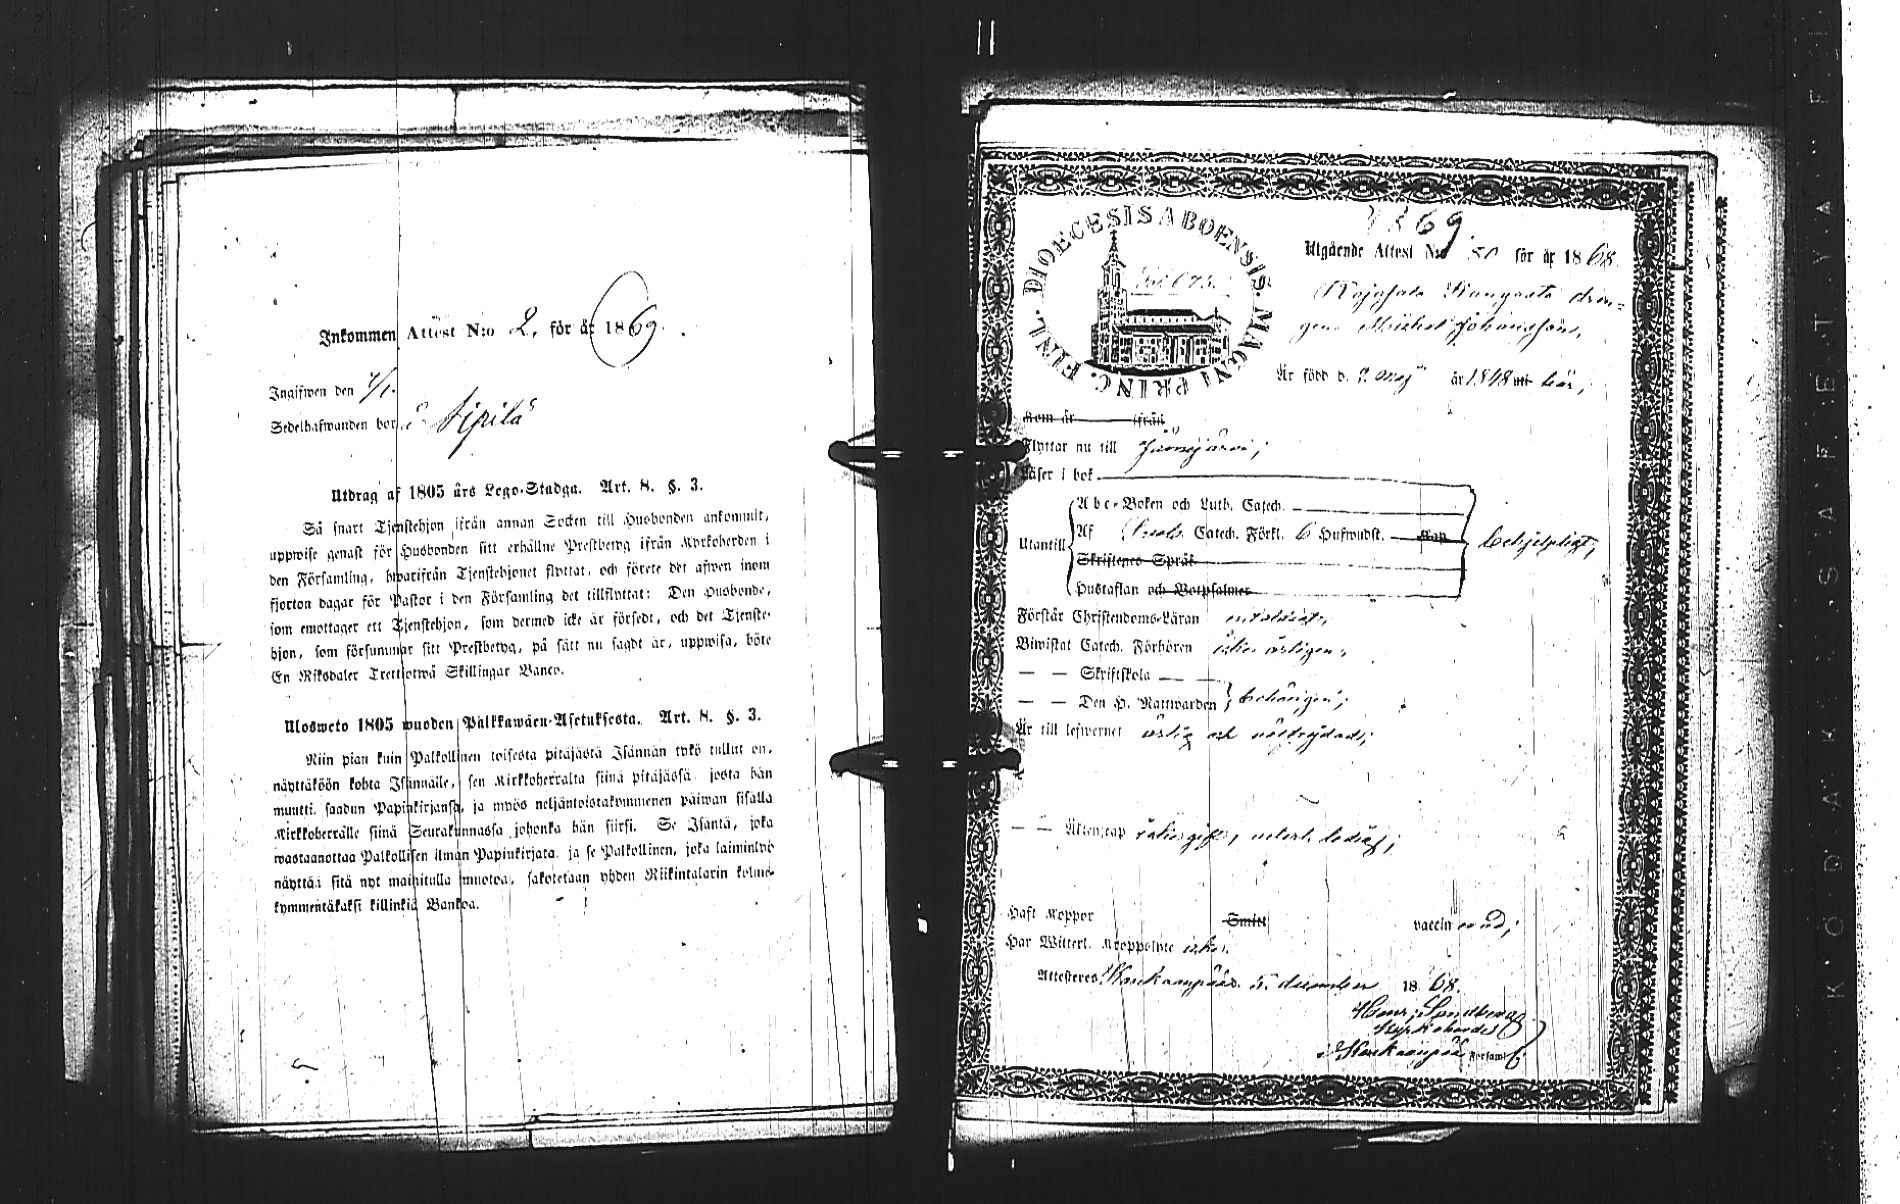 Inkommen Attest N:o 2, för år 1869.
Ingifwen den 7/1.
Sedelhafwanden bor å Sipilä
Utdrag af 1805 års Lego-Stadga. Art. 8. §. 3.
Så snart Tjenstehjon ifrån annan Socken till Husbonden ankommit,
uppwise genast för Husbonden sitt erhållne Prestbetyg ifrån Kyrkoherden i
den Församling, hwarifrån Tjenstehjonet flyttat, och förete det äfwen inom
fjorton dagar för Pastor i den Församling det tillflyttat: Den Husbonde,
som emottager ett Tjenstehjon, som dermed icke är försedt, och det Tjenste-
hjon, som försummar sitt Prestbetyg, på sätt nu sagdt är, uppwisa, böte
En Riksdaler Trettiotwå Skillingar Banco.
Ulosweto 1805 wuoden Palkkawäen-Asetuksesta. Art. 8. §. 3.
Niin pian kuin Palkollinen toisesta pitäjästä Isännän tykö tullut on,
näyttäköön kohta Isännälle, sen Kirkkoherralta siinä pitäjässä josta hän
muutti, saadun Papinkirjansa, ja myös neljäntoistakymmenen päiwän sisällä
Kirkkoherralle siinä Seurakunnassa johonka hän siirsi. Se Isäntä, joka
wastaanottaa Palkollisen ilman Papinkirjata, ja se Palkollinen, joka laiminlyö
näyttää sitä nyt mainitulla muotoa, sakotetaan yhden Riikintalarin kolme-
kymmentäkaksi killinkiä Bankoa.
DIOECESIS ABOENSIS. MAGNI PRINC. FINL.
1869.
Utgående Attest N:o 80 för år 1868.
Kangasta drän-
gen Michel Johansson,
Är född d. 9 Maj år 1848 här,
Kom år ifrån
Flyttar nu till Jämijärvi,
Läser i bok
Utantill
Abc-Boken och Luth. Catech.
Af Catech. Förkl. 6 Hufwudst.
behjelpligt,
Skriftenes Språk
Hustaflan och Botpsalmer
Förstår Christendoms-Läran
Biwistat Catech. Förhören årligen,
— — Skriftskola
— — Den H. Nattwarden behörigen,
Är till lefwernet ärlig och
— — Äktenskap
Haft Koppor Smitt vaccinerad,
Har Witterl. Kroppslyte icke.
Attesteras Kankaanpää d. 5 december 1868.
Henr. Sandberg
Kyrkoherde
i Kankaanpää Församl.
KODAK SAFETY